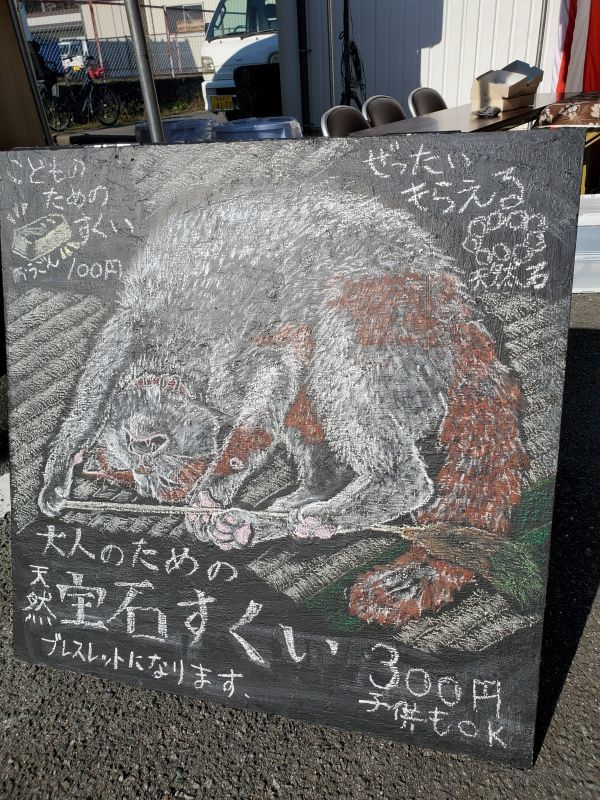 こどもの
ための
すくい
100円
ぜったい
もらえる
天然石
大人のための
天然
宝石すくい
ブレスレットになります、
300円
子供もOK